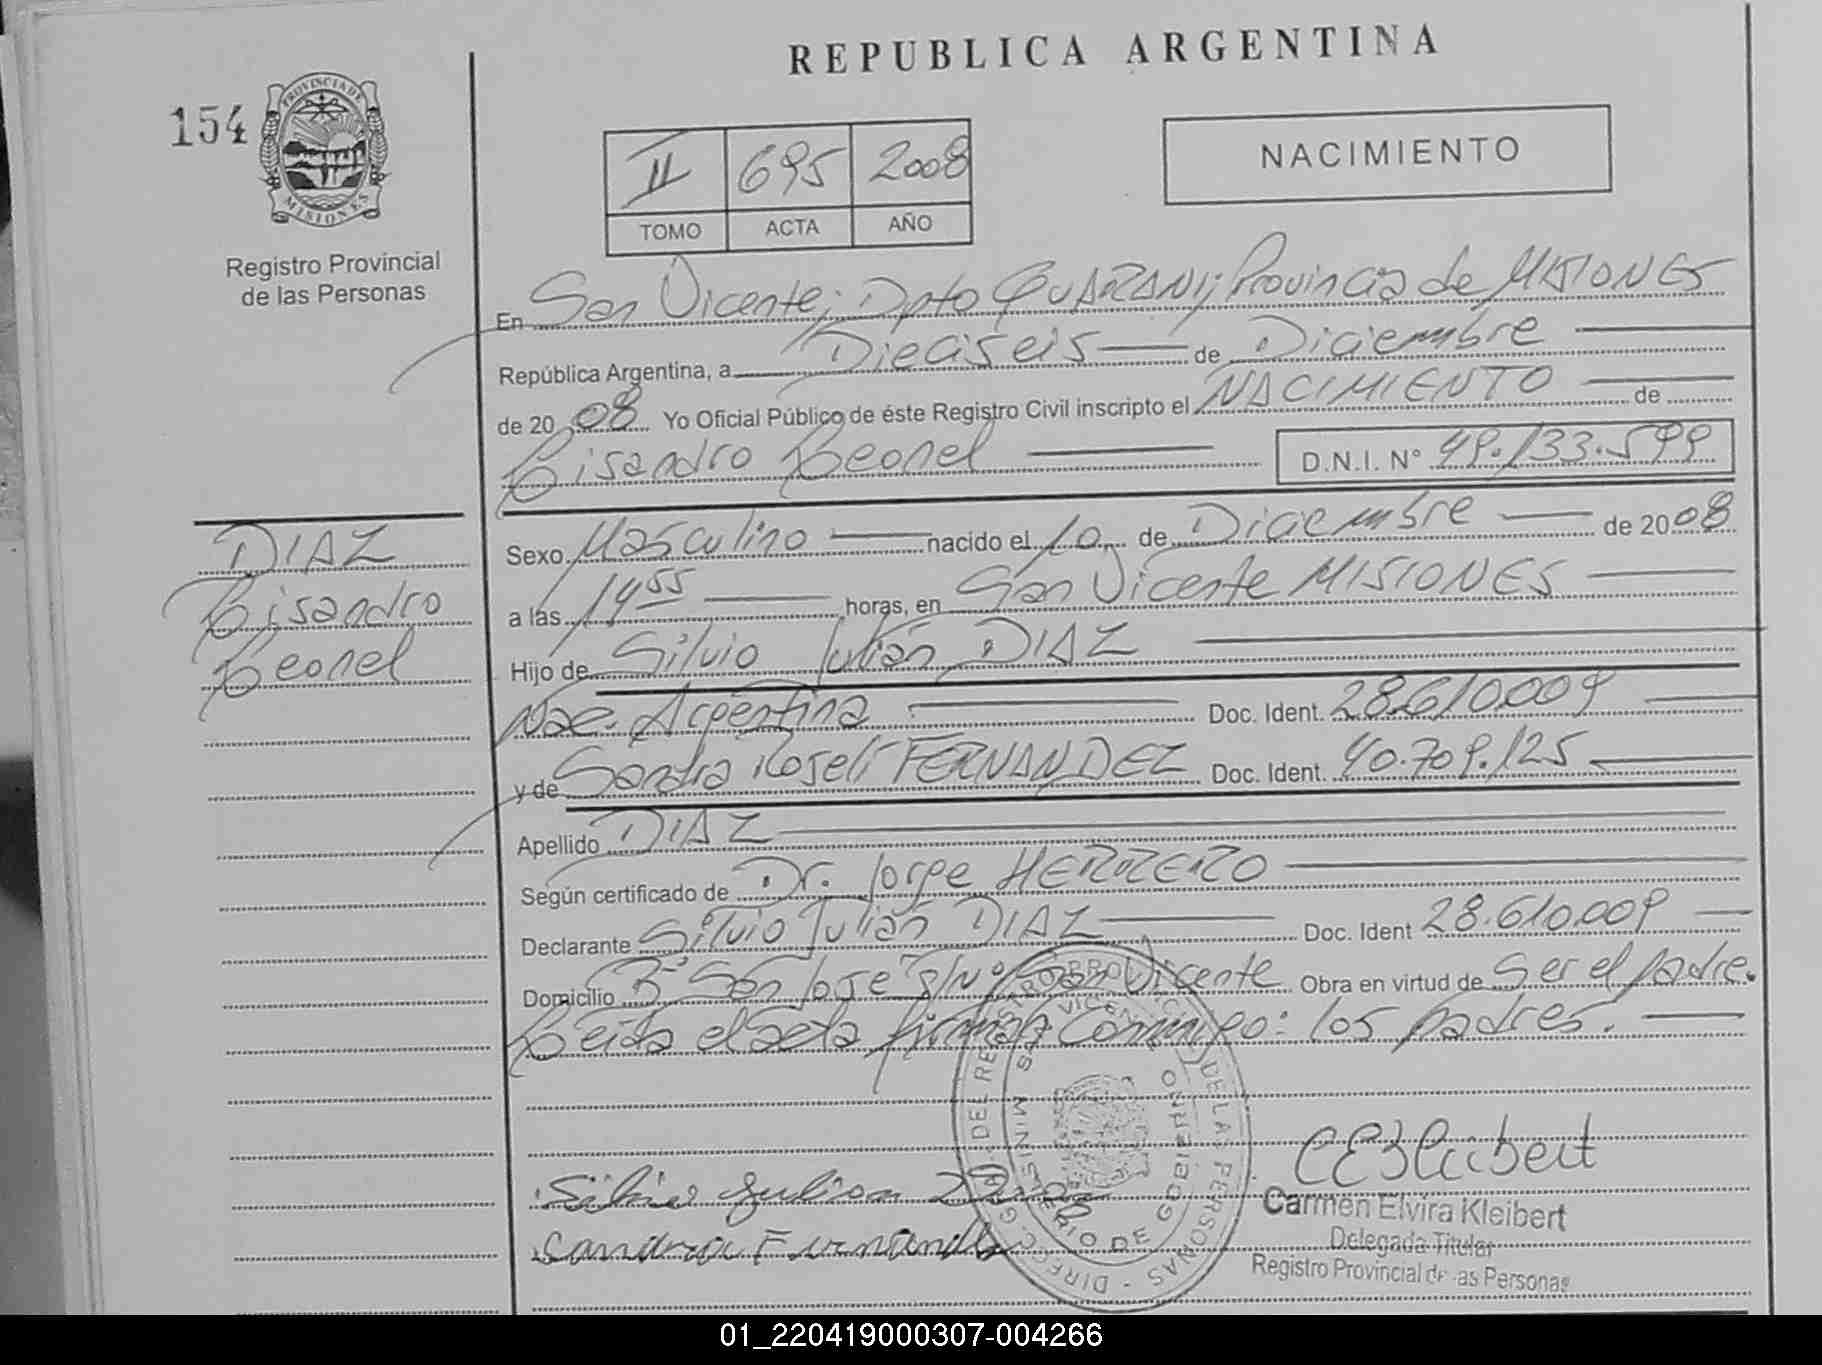 REPUBLICA ARGENTINA
154
PROVINCIA DE
MISIONES
Registro Provincial
de las Personas
II 695 2008
TOMO ACTA AÑO
NACIMIENTO
En San Vicente; Dpto GUARANI; Provincia de MISIONES
República Argentina, a Dieciseis de Diciembre
de 2008 Yo Oficial Público de éste Registro Civil inscripto el NACIMIENTO de
Lisandro Leonel D.N.I. N° 49.133.599
DIAZ
Lisandro
Leonel
Sexo Masculino nacido el 10 de Diciembre de 2008
a las 1455 horas, en San Vicente MISIONES
Hijo de Silvio Julián DIAZ
Nac. Argentina Doc. Ident. 28.610.009
y de Sandra Roseli FERNANDEZ Doc. Ident. 40.709.125
Apellido DIAZ
Según certificado de Dr. Jorge HERRERO
Declarante Silvio Julián DIAZ Doc. Ident 28.610.009
Domicilio B° San José S/N° San Vicente Obra en virtud de Ser el padre.
Leída el acta firman Conmigo: los padres.
CEKleibert
Silvio Julian
Sandra Fernandez
Carmen Elvira Kleibert
Delegada Titular
Registro Provincial de las Personas
MINISTERIO DE GOBIERNO
01_220419000307-004266